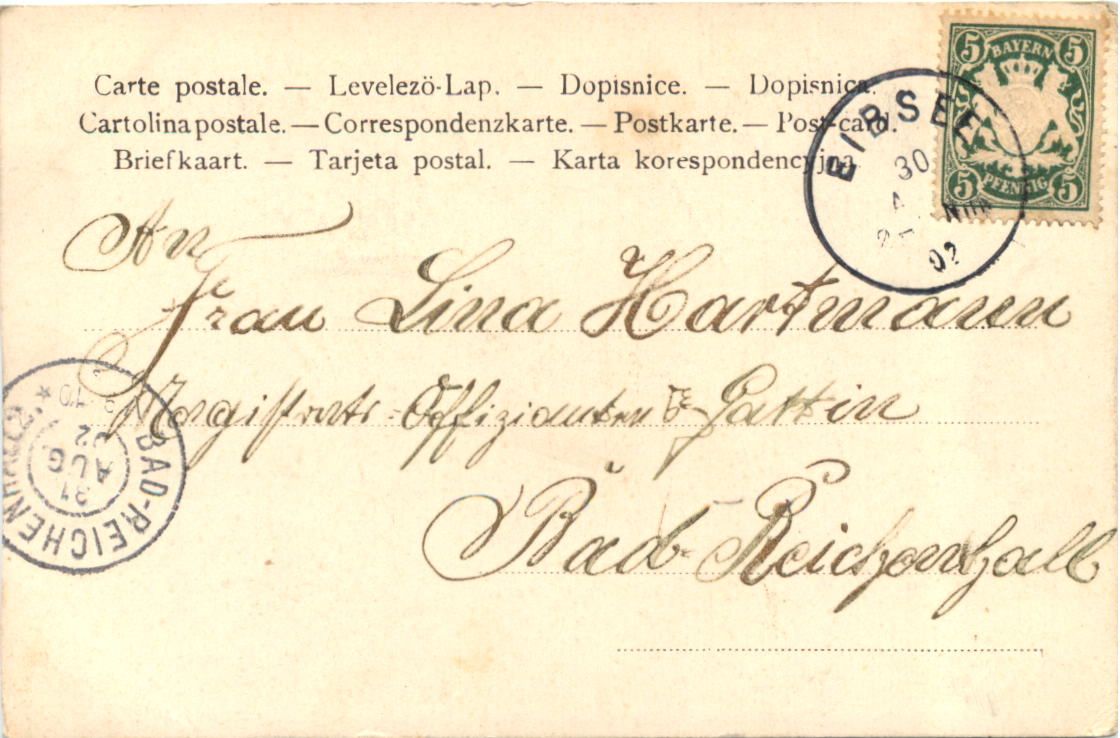 Carte postale. — Levelezö-Lap. — Dopisnice. — Dopisnica.
Cartolina postale. — Correspondenzkarte. — Postkarte. — Post-card.
Briefkaart. — Tarjeta postal. — Karta korespondencyjna.
5 BAYERN 5
5 PFENNIG 5
EIBSEE
30
02
An
Frau Lina Hartmann
Magistrats-Offizianten Gattin
Bad-Reichenhall
BAD-REICHENHALL
31
AUG
02